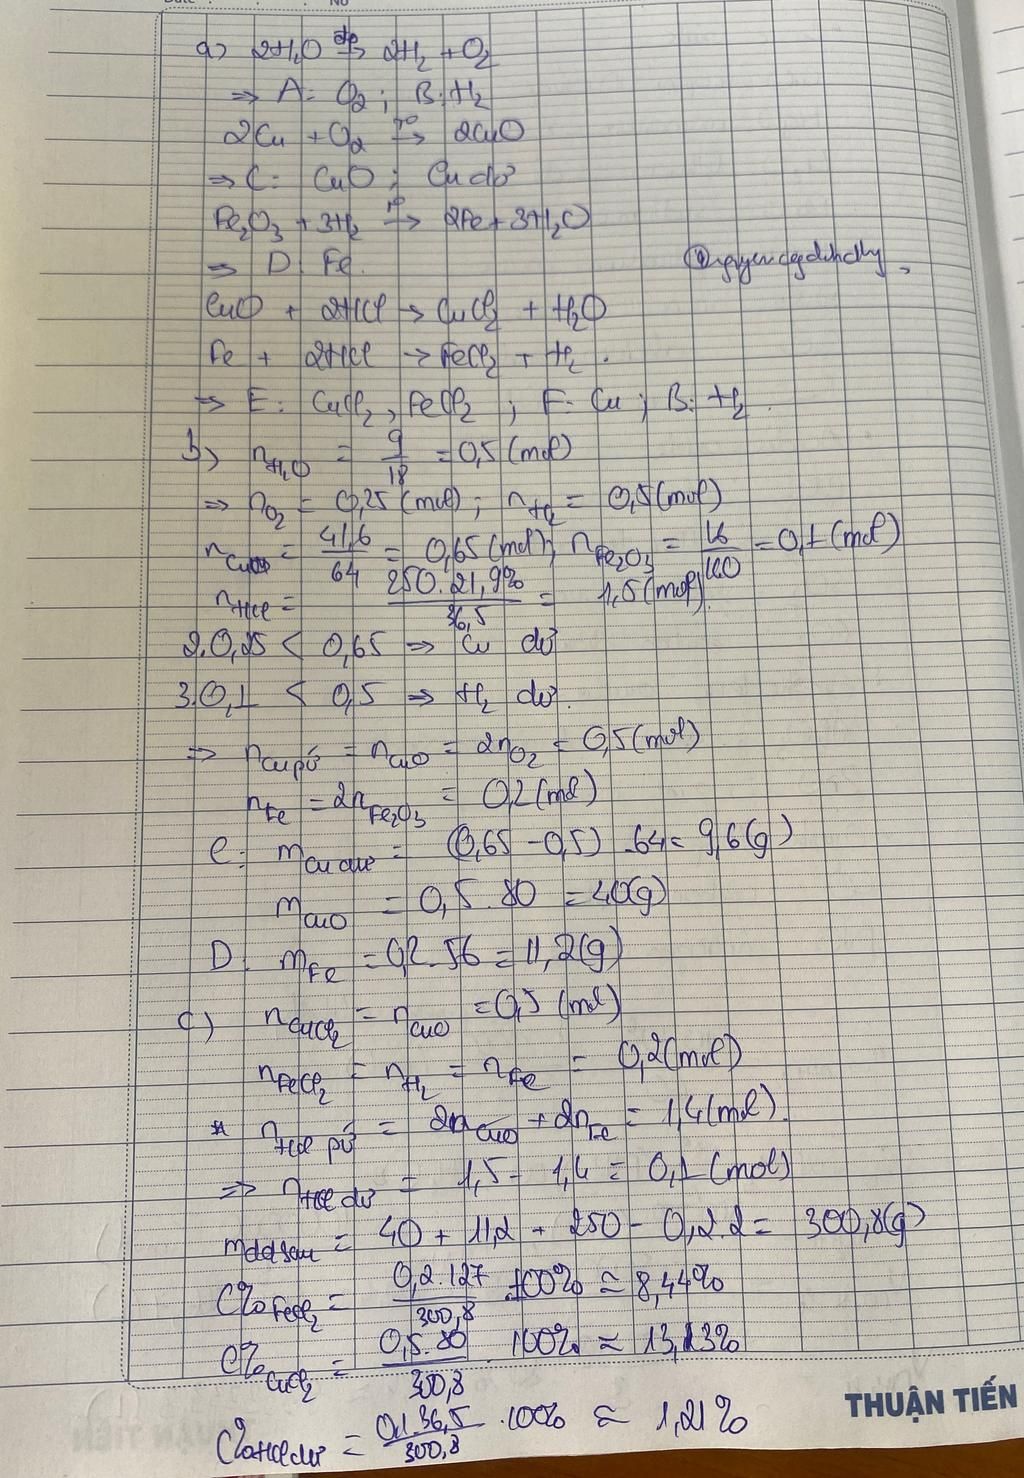 a) 2H₂O đp→ 2H₂ + O₂
⇒ A: O₂ ; B: H₂
2Cu + O₂ t°→ 2CuO
⇒ C: CuO ; Cu dư
Fe₂O₃ + 3H₂ t°→ 2Fe + 3H₂O
⇒ D: Fe.
CuO + 2HCl → CuCl₂ + H₂O
Fe + 2HCl → FeCl₂ + H₂.
⇒ E: CuCl₂, FeCl₂ ; F: Cu ; B: H₂.
b) nH₂O = 9/18 = 0,5 (mol)
⇒ nO₂ = 0,25 (mol) ; nH₂ = 0,5 (mol)
= 41,6/64 = 0,65 (mol) ; nFe₂O₃ = 16/160 = 0,1 (mol)
nHCl = 250.21,9%/36,5 = 1,5 (mol)
2.0,25 < 0,65 ⇒ Cu dư
3.0,1 < 0,5 ⇒ H₂ dư.
⇒ nCu pứ = nCuO = 2nO₂ = 0,5 (mol)
nFe = 2nFe₂O₃ = 0,2 (mol)
C: mCu dư = (0,65 - 0,5) . 64 = 9,6 (g)
mCuO = 0,5 . 80 = 40 (g)
D: mFe = 0,2 . 56 = 11,2 (g)
c) nCuCl₂ = nCuO = 0,5 (mol)
nFeCl₂ = nH₂ = nFe = 0,2 (mol)
* nHCl pứ = 2nCuO + 2nFe = 1,4 (mol).
⇒ nHCl dư = 1,5 - 1,4 = 0,1 (mol)
mdd sau = 40 + 11,2 + 250 - 0,2.2 = 300,8 (g)
C%FeCl₂ = 0,2.127/300,8 .100% ≈ 8,44%
C%CuCl₂ = 0,5.80/300,8 . 100% ≈ 13,13%
C%HCl dư = 0,1.36,5/300,8 .100% ≈ 1,21%
THUẬN TIẾN